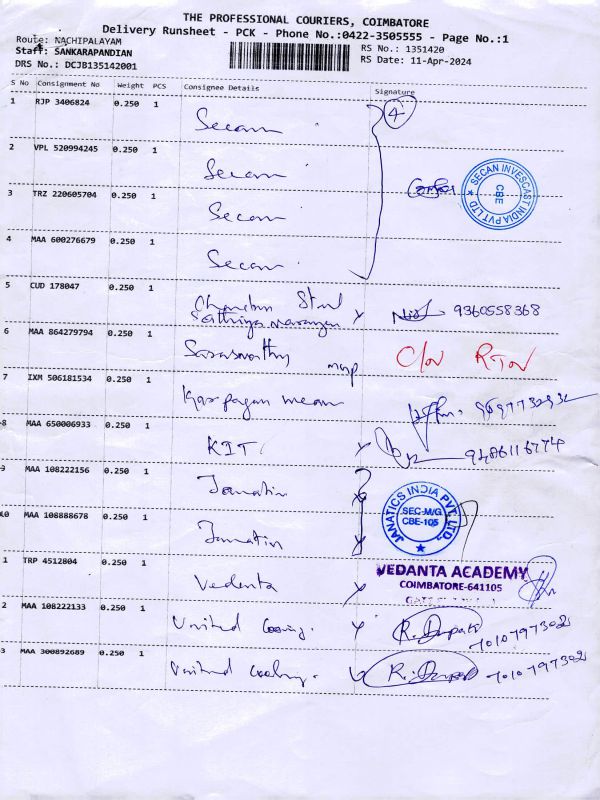 THE PROFESSIONAL COURIERS, COIMBATORE
Delivery Runsheet - PCK - Phone No.:0422-3505555 - Page No.:1
Route: NACHIPALAYAM
Staff: SANKARAPANDIAN
DRS No.: DCJB135142001
RS No.: 1351420
RS Date: 11-Apr-2024
S No Consignment No Weight PCS Consignee Details Signature
1 RJP 3406824 0.250 1 Secan 4
2 VPL 520994245 0.250 1 Secan
SECAN INVESCAST INDIA PVT LTD ★ CBE
3 TRZ 220605704 0.250 1 Secan
4 MAA 600276679 0.250 1 Secan
5 CUD 178047 0.250 1 Chandra Steel 9360558368
Sathiyanarayanan
6 MAA 864279794 0.250 1 Saraswathy C/N RTN
7 IXM 506181534 0.250 1 Karpagam
8 MAA 650006933 0.250 1 KIT 9486116774
9 MAA 108222156 0.250 1 Janatics
JANATICS INDIA PVT. LTD. ★
SEC-M/G
CBE-105
10 MAA 108888678 0.250 1 Janatics
1 TRP 4512804 0.250 1 Vedanta
VEDANTA ACADEMY
COIMBATORE-641105
2 MAA 108222133 0.250 1 United Cooling. R. Deepak 7010797302
3 MAA 300892689 0.250 1 United Cooling. R. Deepak 7010797302